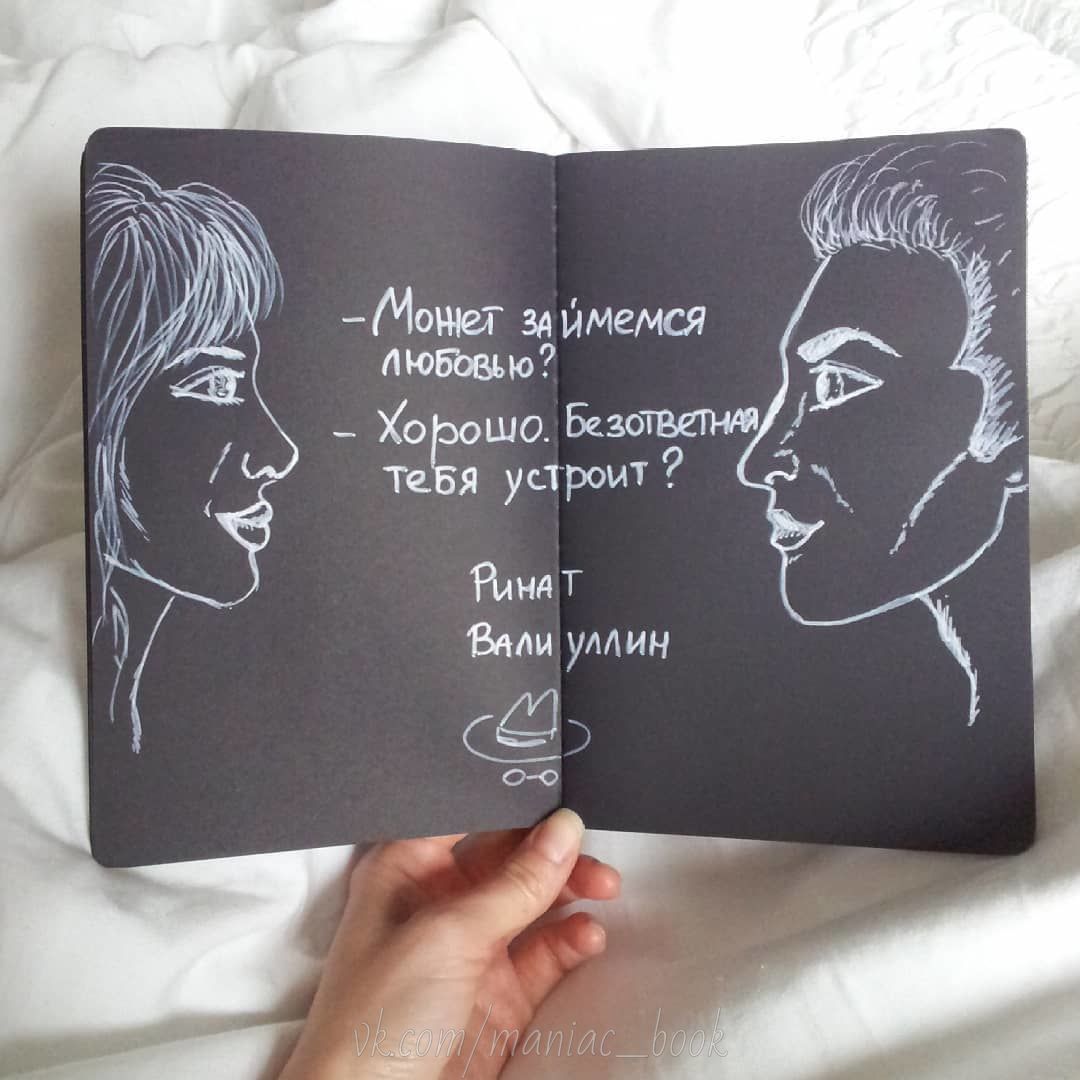 - Может займемся
любовью?
- Хорошо. Безответная
тебя устроит?
Ринат
Валиуллин
vk.com/maniac_book